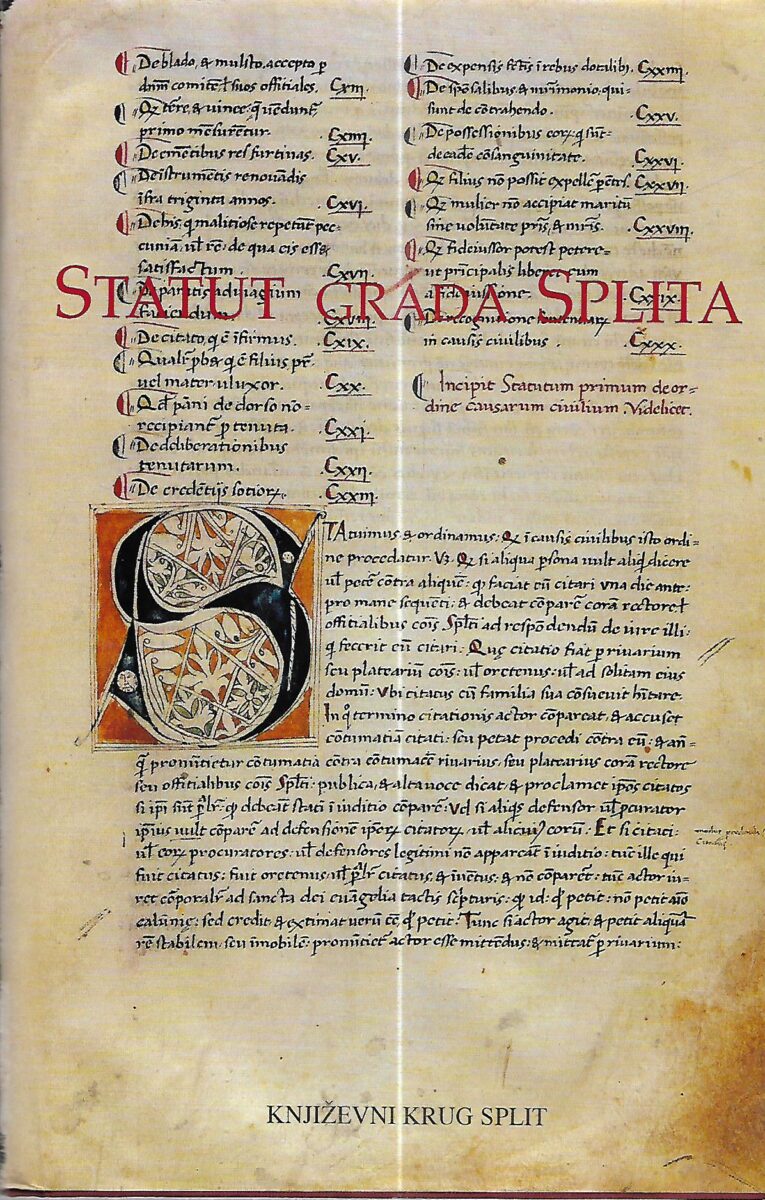 STATUT GRADA SPLITA
De blado, & musto, accepto p
dnm comitē l suos officiales. Cxiii.
Qƺ terre, & vince
primo mēsurētur. Cxiiii.
De emētibus res furtiuas. Cxv.
De īstrumētis renouādis
īfra triginta annos. Cxvi.
De his, q̄ malitiose repetūt pec=
cuniā, ul rē: de qua eis esse
satisfactum. Cxvii.
faciendum. Cxviii.
De citato, q ē īfirmus. Cxix.
uel mater ul uxor. Cxx.
Qd pāni de dorso nō=
recipiant p tenuta. Cxxi.
De deliberationibus
tenutarum. Cxxii.
De credētijs sotiorꝝ. Cxxiii.
De expensis fctis ī rebus dotalibꝫ. Cxxiiii.
De spōsalibus, & mr̄imonio, qui=
sunt de contrahendo. Cxxv.
De possessionibus corꝝ q sūt=
de eadē cōsanguinitate. Cxxvi.
Qƺ filius nō possit expellē pr̄ētes. Cxxvii.
Qƺ mulier nō accipiat maritū
sine volūtate pr̄is, & mr̄is. Cxxviii.
Qƺ fideiussor potest petere=
ut prīcipalis liberet eum
a fideiussione. Cxxix.
De recognitione
in causis ciuilibus. Cxxx.
Incipit Statutum primum de or=
dine causarum ciuilium. Videlicet.
STAtuimus & ordinamus: Qƺ ī causis ciuilibus isto ordi=
ne procedatur. Vƺ. Qƺ si aliqua psona uult aliqd dicere
ul petē contra aliquē: qƺ faciat eū citari vna die ante:
pro mane sequēti: & debeat cōparē corā rectore l
officialibus cōis Splti ad respōdendū de iure illi:
q fecerit eū citari. Que citatio fiat p riuarium
seu platearium cōis: ul oretenus: ul ad solitam eius
domū: Vbi citatus cū familia sua cōsueuit hītare.
In q termino citationis actor cōpareat, & accuset
cōtumatiā citati: seu petat procedi contra eū: & an=
q̄ pronūtietur cōtumatia contra cōtumacē riuarius, seu platearius corā rectore
seu offitialibus cōis Splti: publica, & alta uoce dicat, & proclamet ipos citatos
si ipi sunt debeāt stati ī iuditio cōparē: Vel si aliqs defensor ul pcurator
ipius uult cōparē ad defensionē iporꝝ citatorꝝ, ul alicui corū: Et si citati:
ul corꝝ procuratores: ul defensores legitimi nō appareāt ī iuditio: tūc ille qui
fuit citatus: fuit oretenus: ul citatus, & īuētus: & nō cōparet: tūc actor iu=
ret cōporalr ad sancta dei euāgelia tactis scpturis: qƺ id: q petit: nō petit aīo
calūnie: sed credit, & extimat uerū eē q petit: Tunc si actor agit: & petit aliquā
rē stabilem, seu īmobilē: pronūtiet actor esse mittēdus: & mittat p riuarium:
KNJIŽEVNI KRUG SPLIT